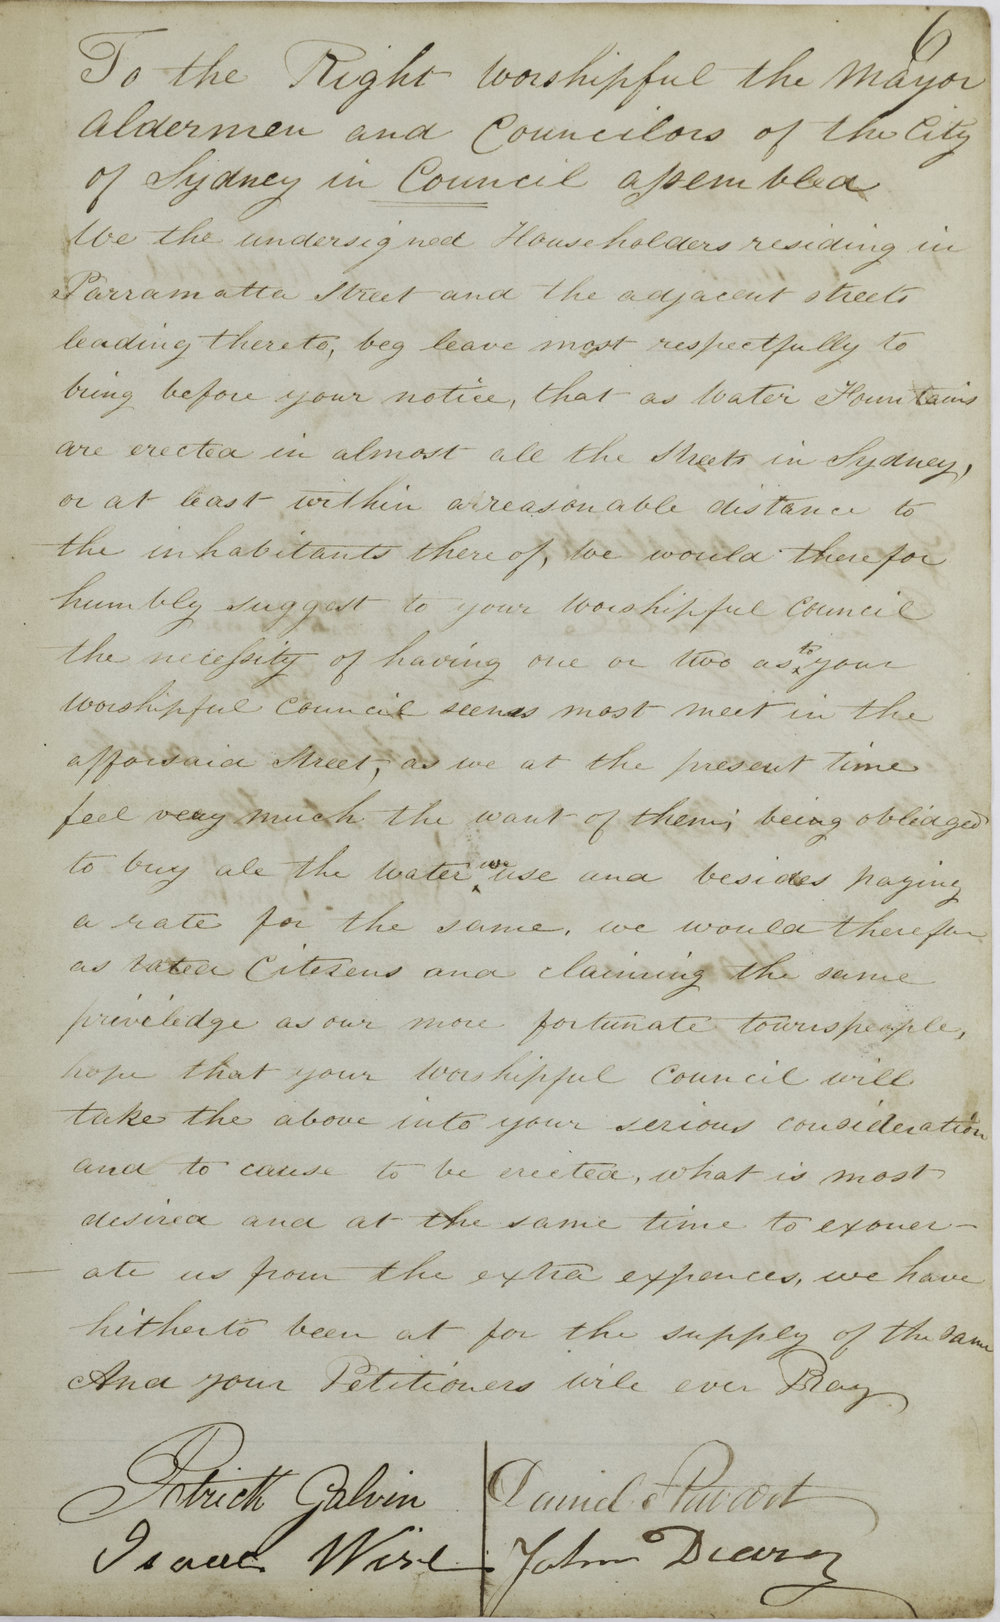 6
To the Right Worshipful the Mayor
Aldermen and Councilors of the City
of Sydney in Council assembled
We the undersigned Householders residing in
Parramatta Street and the adjacent streets
leading thereto, beg leave most respectfully to
bring before your notice, that as Water Fountains
are erected in almost all the Streets in Sydney,
or at least within a reasonable distance to
the inhabitants thereof, we would therefor
humbly suggest to your Worshipful Council
the necessity of having one or two as to your
Worshipful Council seems most meet in the
afforsaid Street, as we at the present time
feel very much the want of them; being obliadged
to buy all the Water we use and besides paying
a rate for the same, we would therefor
as rated Citezens and claiming the same
priviledge as our more fortunate townspeaple,
hope that your Worshipful Council will
take the above into your serious consideration
and to cause to be erected, what is most
desired and at the same time to exoner-
ate us from the extra expences, we have
hitherto been at for the supply of the same
And your Petitioners will ever Pray
Patrick Galvin
Daniel
Isaac Wise
John